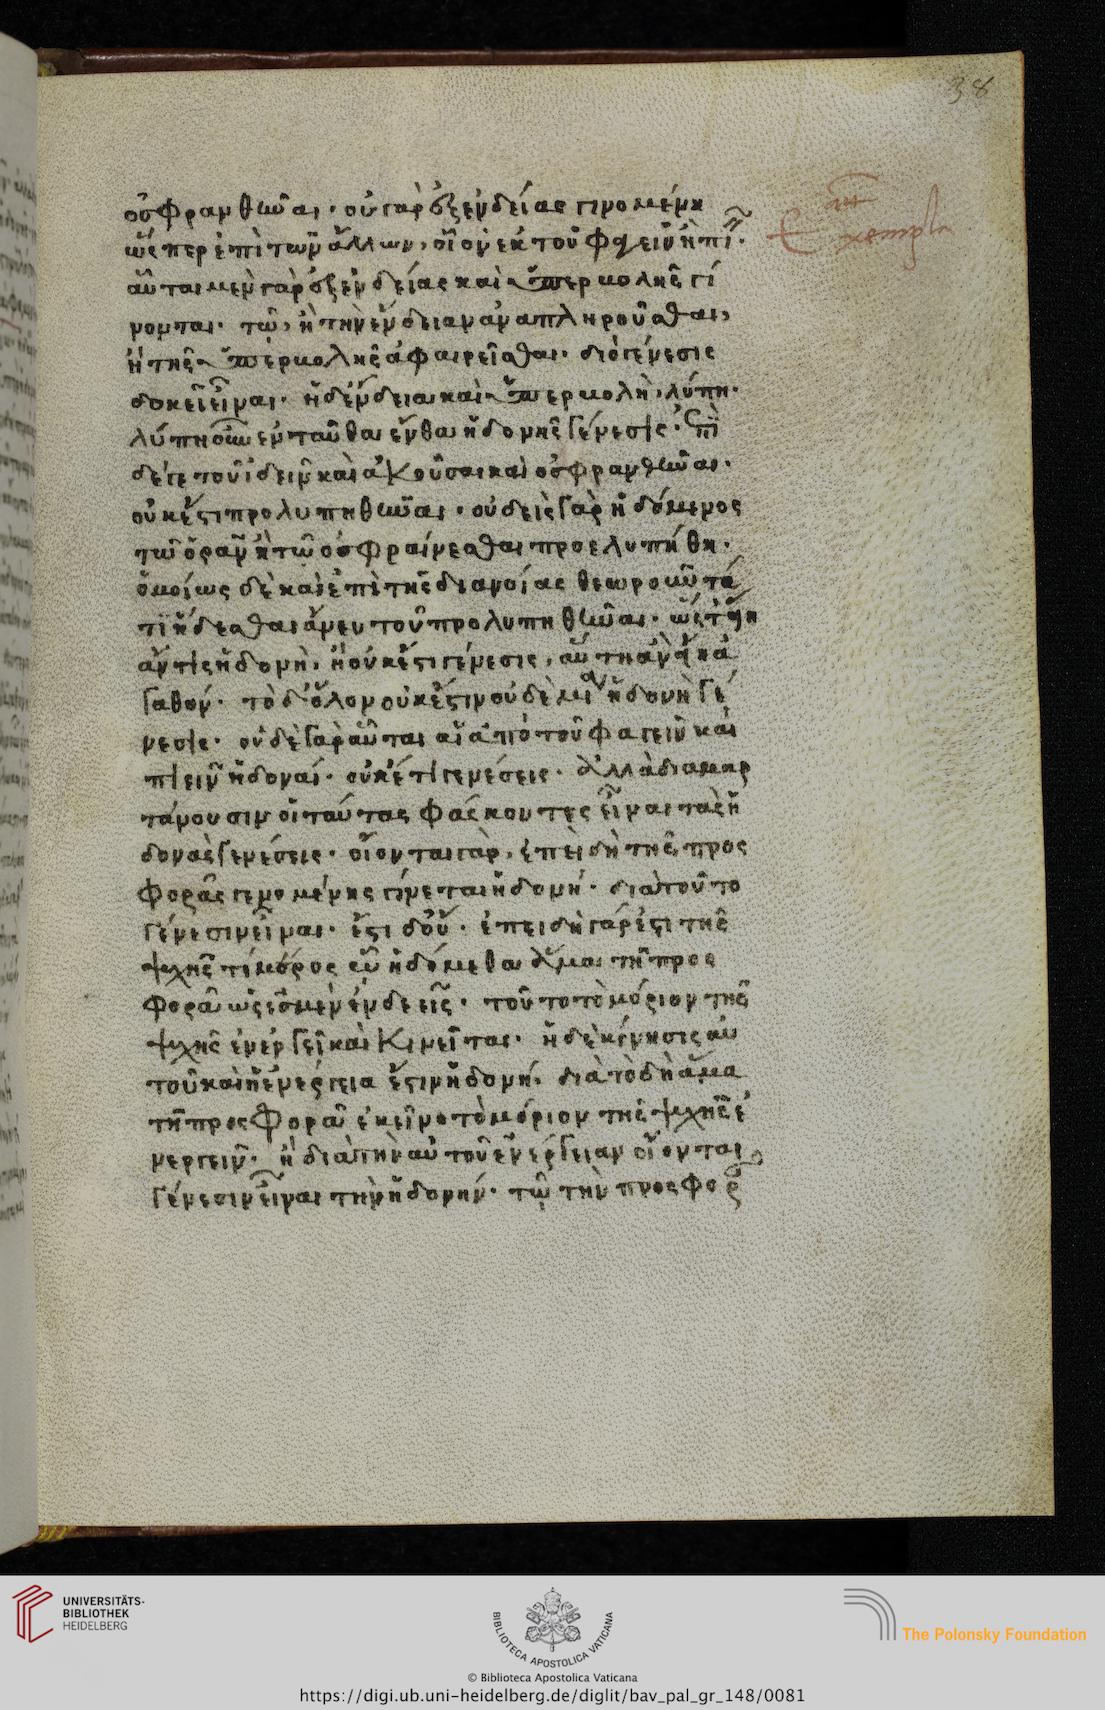 38
ὀσφρανθῶσι· οὐ γὰρ ἐξ ἐνδείας γινομένη
ὥσπερ ἐπὶ τῶν ἄλλων, οἷον ἐκ τοῦ φαγεῖν ἢ πι
αὗται μὲν γὰρ ἐξ ἐνδείας καὶ ὑπερβολῆς γί
νονται· τῷ, ἢ τὴν ἔνδειαν ἀναπληροῦσθαι,
ἢ τῆς ὑπερβολῆς ἀφαιρεῖσθαι· διὸ γένεσις
δοκεῖ εἶναι· ἡ δ' ἔνδεια καὶ ὑπερβολὴ, λύπη·
λύπη οὖν ἐνταῦθα ἔνθα ἡδονῆς γένεσις· ἐπὶ
δέ γε τοῦ ἰδεῖν καὶ ἀκοῦσαι καὶ ὀσφρανθῶσι·
οὐκ ἔστι προλυπηθῶσι· οὐδεὶς γὰρ ἡδόμενος
τῷ ὁρᾶν ἢ τῷ ὀσφραίνεσθαι προελυπήθη·
ὁμοίως δὲ καὶ ἐπὶ τῆς διανοίας θεωροῦντά
τι ἥδεσθαι ἄνευ τοῦ προλυπηθῶσι· ὥστ' εἴη
ἄν τις ἡδονὴ, ἣ οὐκ ἔστι γένεσις,
γαθόν· τὸ δ' ὅλον οὐκ ἔστιν οὐδεμία ἡδονὴ γέ
νεσις· οὐδὲ γὰρ αὗται αἱ ἀπὸ τοῦ φαγεῖν καὶ
πιεῖν ἡδοναί· οὐκ ἔτι γενέσεις· ἀλλὰ διαμαρ
τάνουσιν οἱ ταύτας φάσκοντες εἶναι τὰς ἡ
δονὰς γενέσεις· οἴονται γὰρ, ἐπειδὴ τῆς προς
φορᾶς γενομένης γίνεται ἡδονή· διὰ τοῦτο
γένεσιν εἶναι· ἔστι δ' οὔ· ἐπειδὴ γάρ ἐστι τῆς
ψυχῆς τι μόρος ᾧ ἡδόμεθα ἅμα τῇ προς
φορᾷ ὧν ἐσμὲν ἐνδεεῖς· τοῦτο τὸ μόριον τῆς
ψυχῆς ἐνεργεῖ καὶ κινεῖται· ἡ δὲ κίνησις αὐ
τοῦ καὶ ἡ ἐνέργεια ἔστιν ἡδονή· διὰ τὸ δὴ ἅμα
τῇ προσφορᾷ ἐκεῖνο τὸ μόριον τῆς ψυχῆς ἐ
νεργεῖν· ἢ διὰ τὴν αὐτοῦ ἐνέργειαν οἴονται
γένεσιν εἶναι τὴν ἡδονήν· τῷ τὴν προσφορ
© Biblioteca Apostolica Vaticana
UNIVERSITÄTS-
BIBLIOTHEK
HEIDELBERG
BIBLIOTECA APOSTOLICA VATICANA
The Polonsky Foundation
https://digi.ub.uni-heidelberg.de/diglit/bav_pal_gr_148/0081